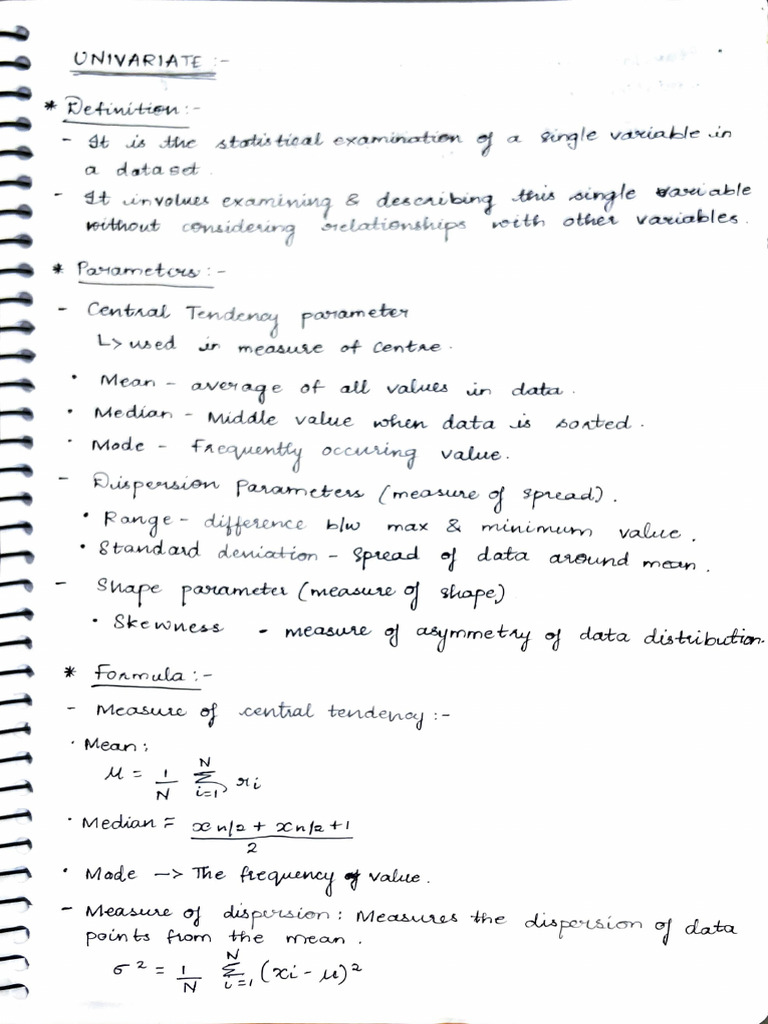 UNIVARIATE :-
* Definition :-
- It is the statistical examination of a single variable in
a dataset.
- It involves examining & describing this single variable
without considering relationships with other variables.
* Parameters :-
- Central Tendency parameter
↳ used in measure of centre.
• Mean - average of all values in data.
• Median - Middle value when data is sorted.
• Mode - Frequently occuring value.
- Dispersion Parameters (measure of spread).
• Range - difference b/w max & minimum value.
• Standard deviation - Spread of data around mean.
- Shape parameter (measure of shape)
• Skewness - measure of asymmetry of data distribution.
* Formula :-
- Measure of central tendency :-
• Mean :
μ = 1/N Σ_{i=1}^{N} xi
• Median = (x n/2 + x n/2 + 1)/2
• Mode -> The frequency of value.
- Measure of dispersion : Measures the dispersion of data
points from the mean.
σ² = 1/N Σ_{i=1}^{N} (xi - μ)²